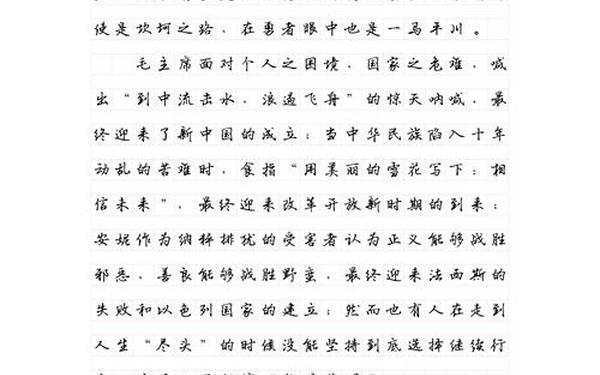 使是坎坷之路，在勇者眼中也是一马平川。
毛主席面对个人之困境，国家之危难，喊
出“到中流击水，浪遏飞舟”的惊天呐喊，最
终迎来了新中国的成立；当中华民族陷入十年
动乱的苦难时，食指“用美丽的雪花写下：相
信未来”，最终迎来改革开放新时期的到来；
安妮作为纳粹排犹的受害者认为正义能够战胜
邪恶，善良能够战胜野蛮，最终迎来法西斯的
失败和以色列国家的建立；然而也有人在走到
人生“尽头”的时候没能坚持到底选择继续行